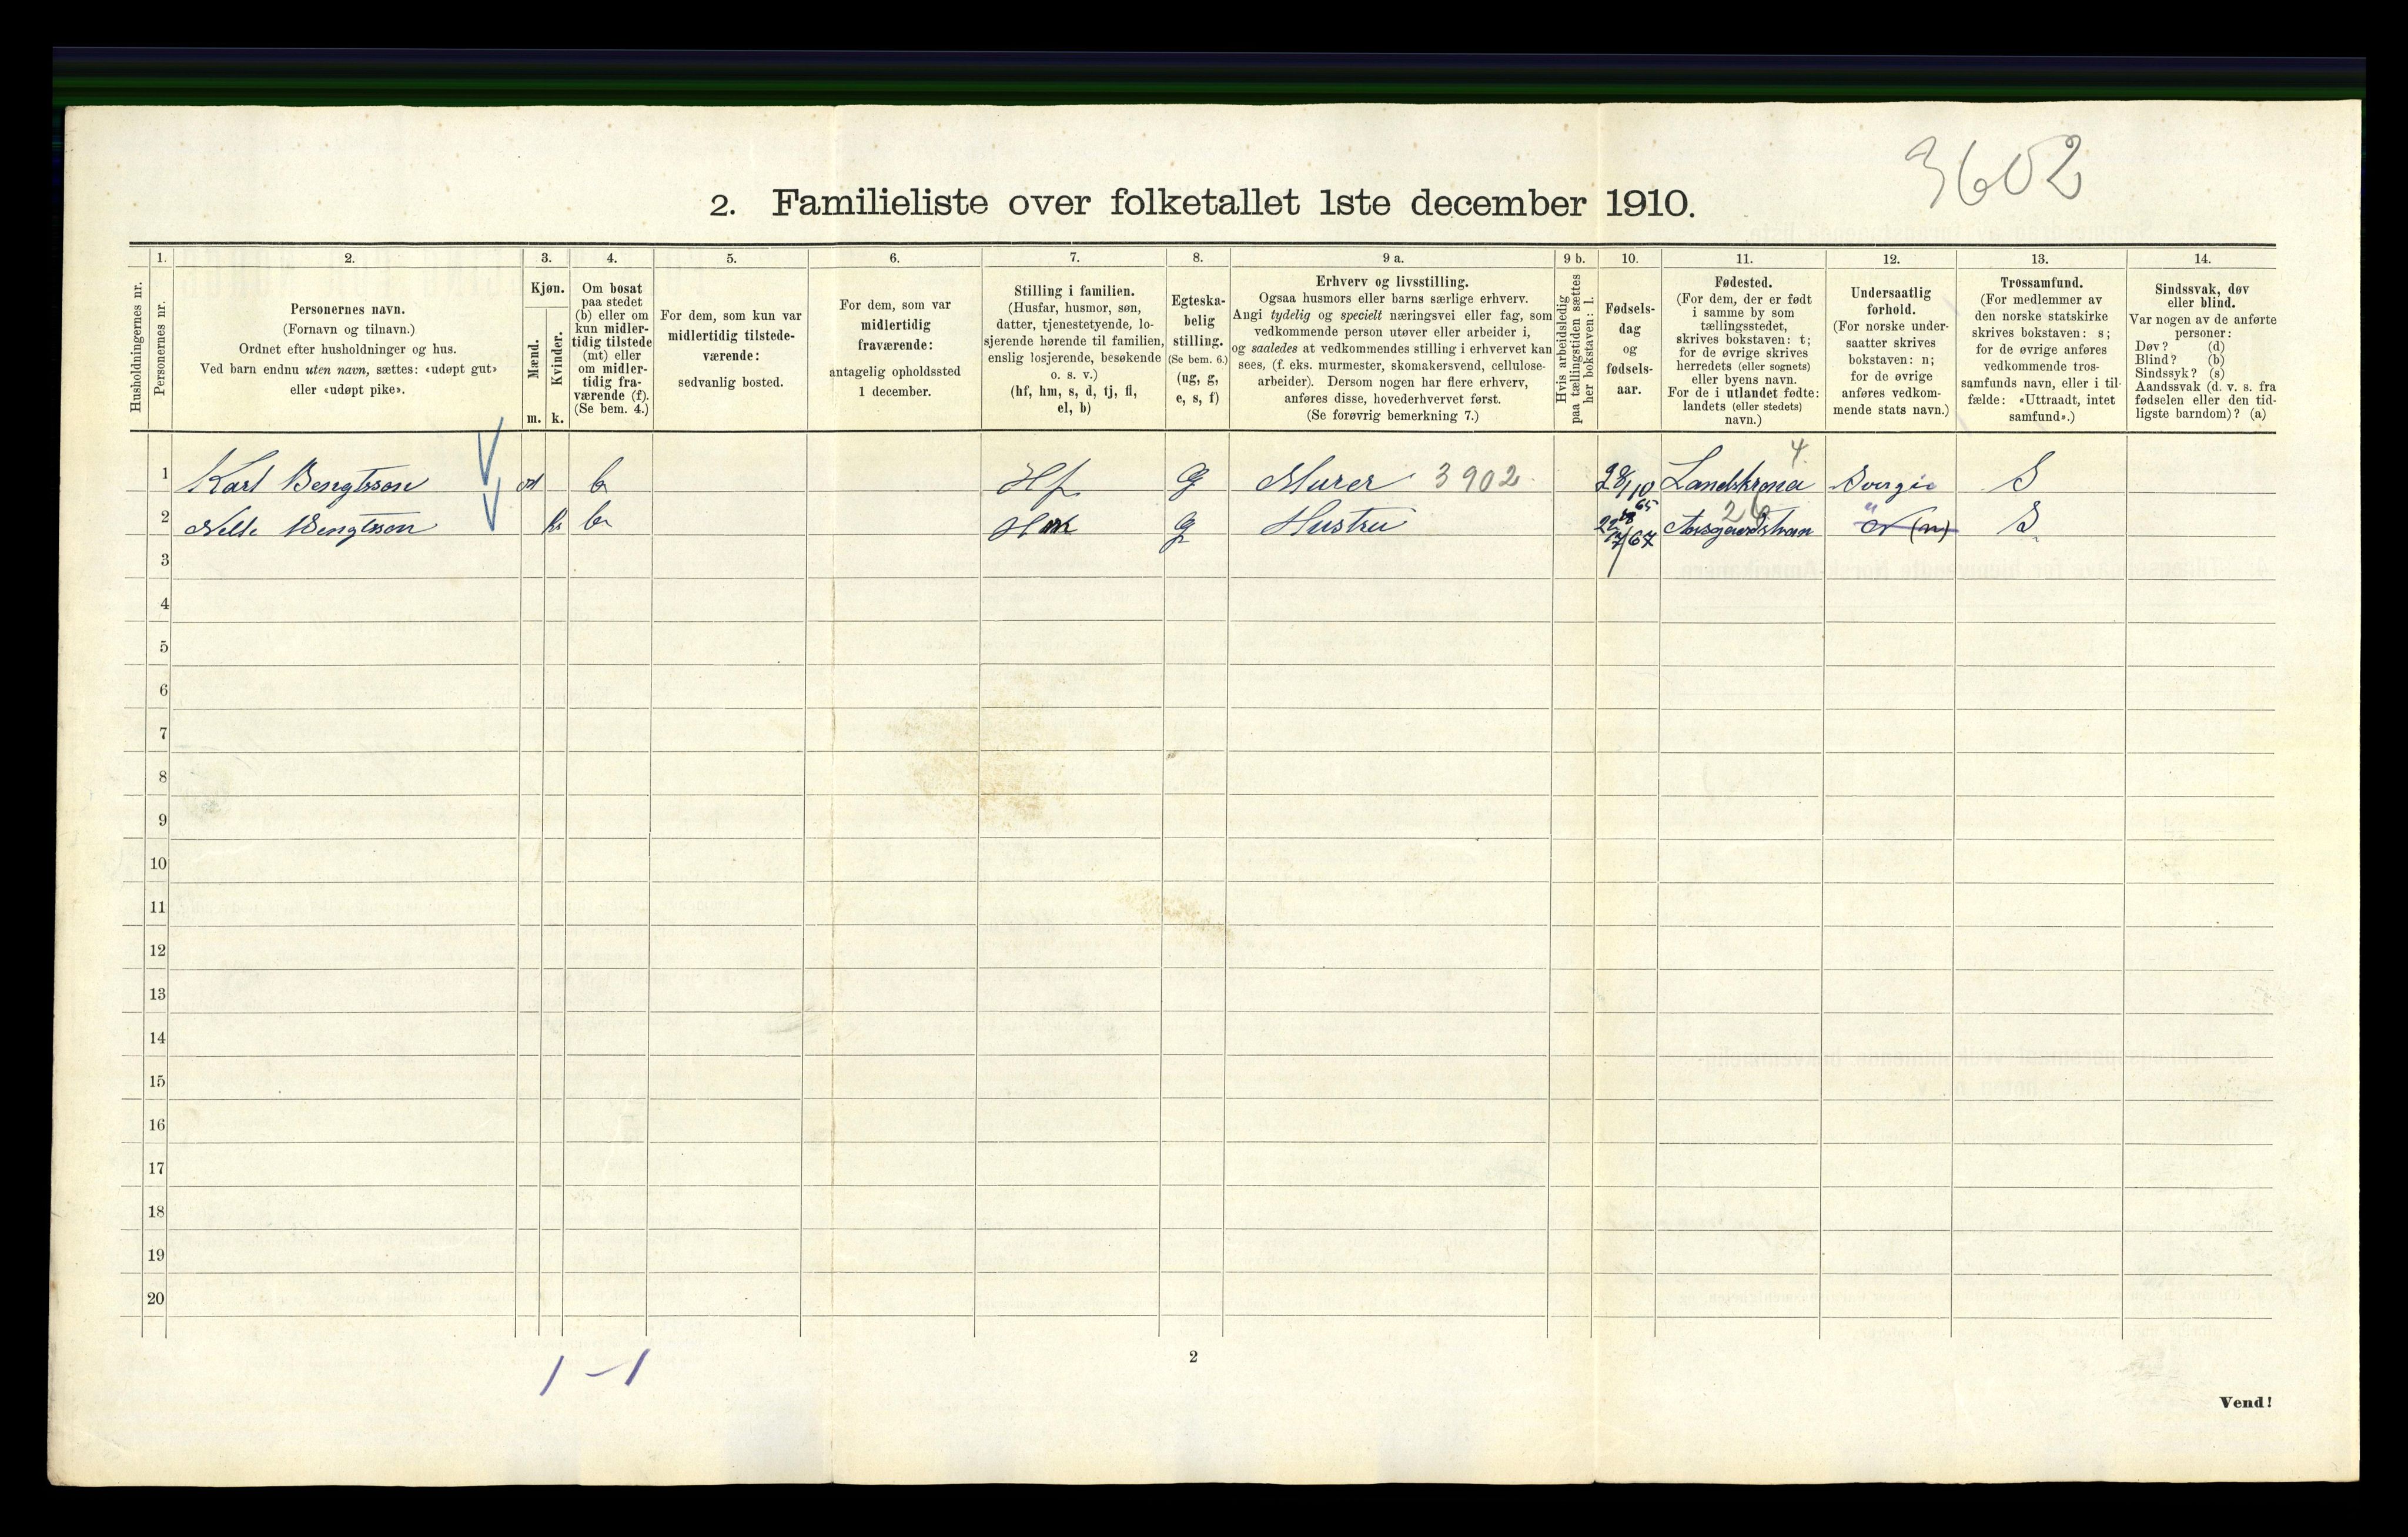 3602
2. Familieliste over folketallet 1ste december 1910.
Husholdningernes nr.
1.
Personernes nr.
2.
Personernes navn.
(Fornavn og tilnavn.)
Ordnet efter husholdninger og hus.
Ved barn endnu uten navn, sættes: «udøpt gut»
eller «udøpt pike».
3.
Kjøn.
Mænd.
Kvinder.
m. k.
4.
Om bosat
paa stedet
(b) eller om
kun midler-
tidig tilstede
(mt) eller
om midler-
tidig fra-
værende (f).
(Se bem. 4.)
5.
For dem, som kun var
midlertidig tilstede-
værende:
sedvanlig bosted.
6.
For dem, som var
midlertidig
fraværende:
antagelig opholdssted
1 december.
7.
Stilling i familien.
(Husfar, husmor, søn,
datter, tjenestetyende, lo-
sjerende hørende til familien,
enslig losjerende, besøkende
o. s. v.)
(hf, hm, s, d, tj, fl,
el, b)
8.
Egteska-
belig
stilling.
(Se bem. 6.)
(ug, g,
e, s, f)
9 a.
Erhverv og livsstilling.
Ogsaa husmors eller barns særlige erhverv.
Angi tydelig og specielt næringsvei eller fag, som
vedkommende person utøver eller arbeider i,
og saaledes at vedkommendes stilling i erhvervet kan
sees, (f. eks. murmester, skomakersvend, cellulose-
arbeider). Dersom nogen har flere erhverv,
anføres disse, hovederhvervet først.
(Se forøvrig bemerkning 7.)
9 b.
Hvis arbeidsledig
paa tællingstiden sættes
her bokstaven: l.
10.
Fødsels-
dag
og
fødsels-
aar.
11.
Fødested.
(For dem, der er født
i samme by som
tællingsstedet,
skrives bokstaven: t;
for de øvrige skrives
herredets (eller sognets)
eller byens navn.
For de i utlandet fødte:
landets (eller stedets)
navn.)
12.
Undersaatlig
forhold.
(For norske under-
saatter skrives
bokstaven: n;
for de øvrige
anføres vedkom-
mende stats navn.)
13.
Trossamfund.
(For medlemmer av
den norske statskirke
skrives bokstaven: s;
for de øvrige anføres
vedkommende tros-
samfunds navn, eller i til-
fælde: «Uttraadt, intet
samfund».)
14.
Sindssvak, døv
eller blind.
Var nogen av de anførte
personer:
Døv? (d)
Blind? (b)
Sindssyk? (s)
Aandssvak (d. v. s. fra
fødselen eller den tid-
ligste barndom)? (a)
4
1 Karl Bengtsson m b Hf g Murer 3902 28/10 65 Landskrona Svergie S
26
2 Nelle Bengtsson k b Hm g Hustru 22 7/67 Aasgaardstran " N (n) S
3
4
5
6
7
8
9
10
11
12
13
14
15
16
17
18
19
20
1 - 1
2
Vend!